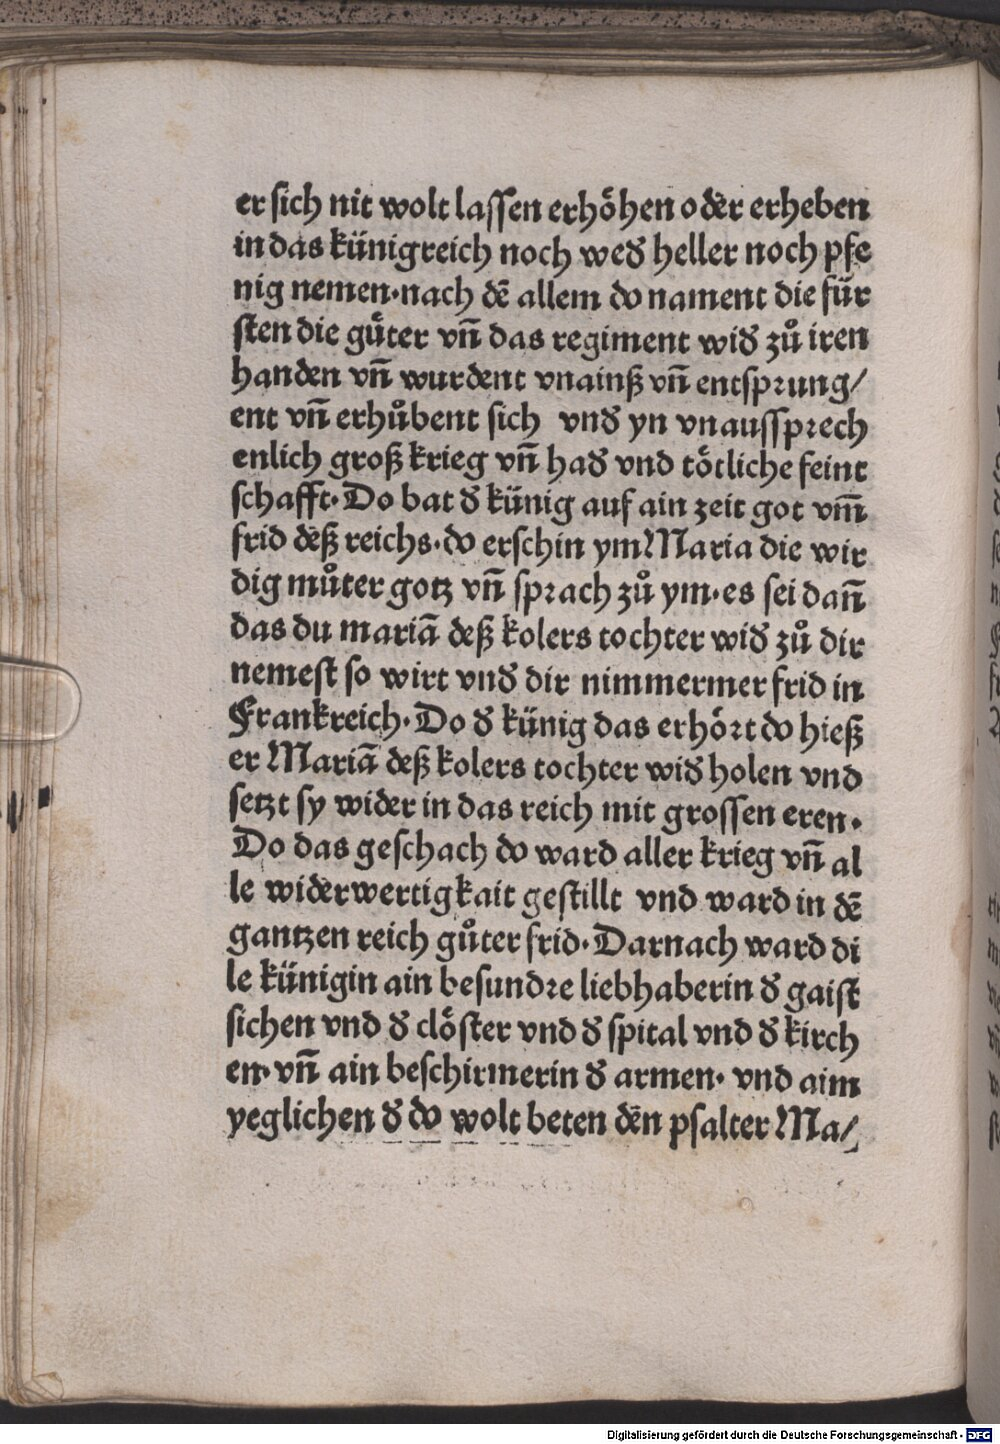 er sich nit wolt lassen erhoͤhen oder erheben
in das künigreich noch wed̛ heller noch pfe
nig nemen·nach dē allem do nament die für
sten die guͤter vn̄ das regiment wid̛ zuͦ iren
handen vn̄ wurdent vnainß vn̄ entsprung/
ent vn̄ erhuͦbent sich vnd̛ yn vnaussprech
enlich groß krieg vn̄ had̛ vnd toͤtliche feint
schafft·Do bat d̛ künig auf ain zeit got vm̄
frid deß reichs·do erschin ym Maria die wir
dig muͦter gotz vn̄ sprach zuͦ ym·es sei dan̄
das du mariā deß kolers tochter wid̛ zuͦ dir
nemest so wirt vnd̛ dir nimmermer frid in
Frankreich·Do d̛ künig das erhoͤrt do hieß
er Mariā deß kolers tochter wid̛ holen vnd
setzt sy wider in das reich mit grossen eren·
Do das geschach do ward aller krieg vn̄ al
le widerwertigkait gestillt vnd ward in dē
gantzen reich guͦter frid·Darnach ward di
le künigin ain besundre liebhaberin d̛ gaist
sichen vnd d̛ cloͤster vnd d̛ spital vnd d̛ kirch
en·vn̄ ain beschirmerin d̛ armen·vnd aim
yeglichen d̛ do wolt beten den psalter Ma/
Digitalisierung gefördert durch die Deutsche Forschungsgemeinschaft - DFG